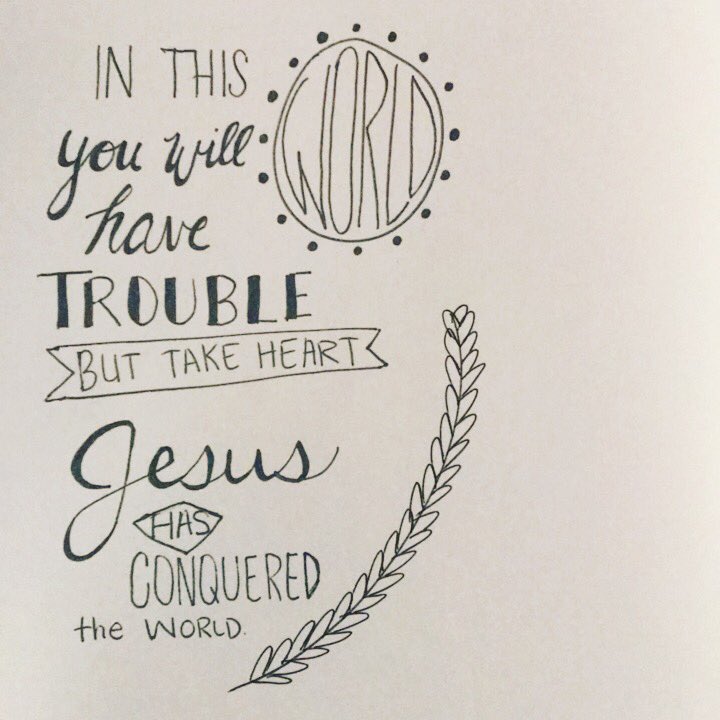 IN THIS WORLD
you will
have
TROUBLE
BUT TAKE HEART
Jesus
HAS
CONQUERED
the WORLD.